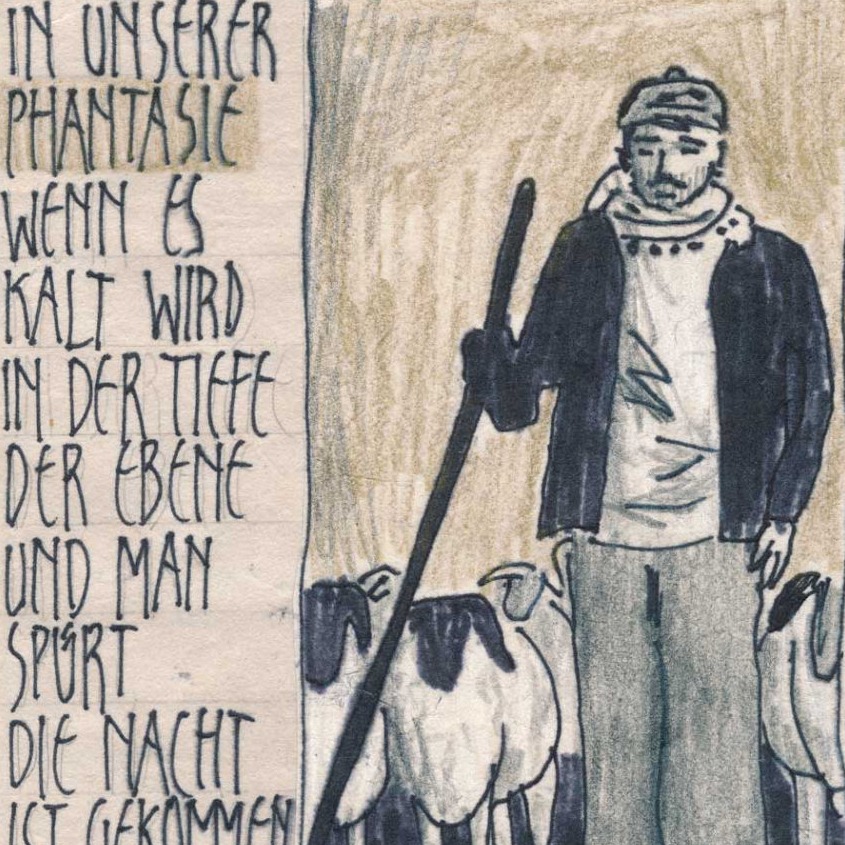 IN UNSERER
PHANTASIE
WENN ES
KALT WIRD
IN DER TIEFE
DER EBENE
UND MAN
SPÜRT
DIE NACHT
IST GEKOMMEN